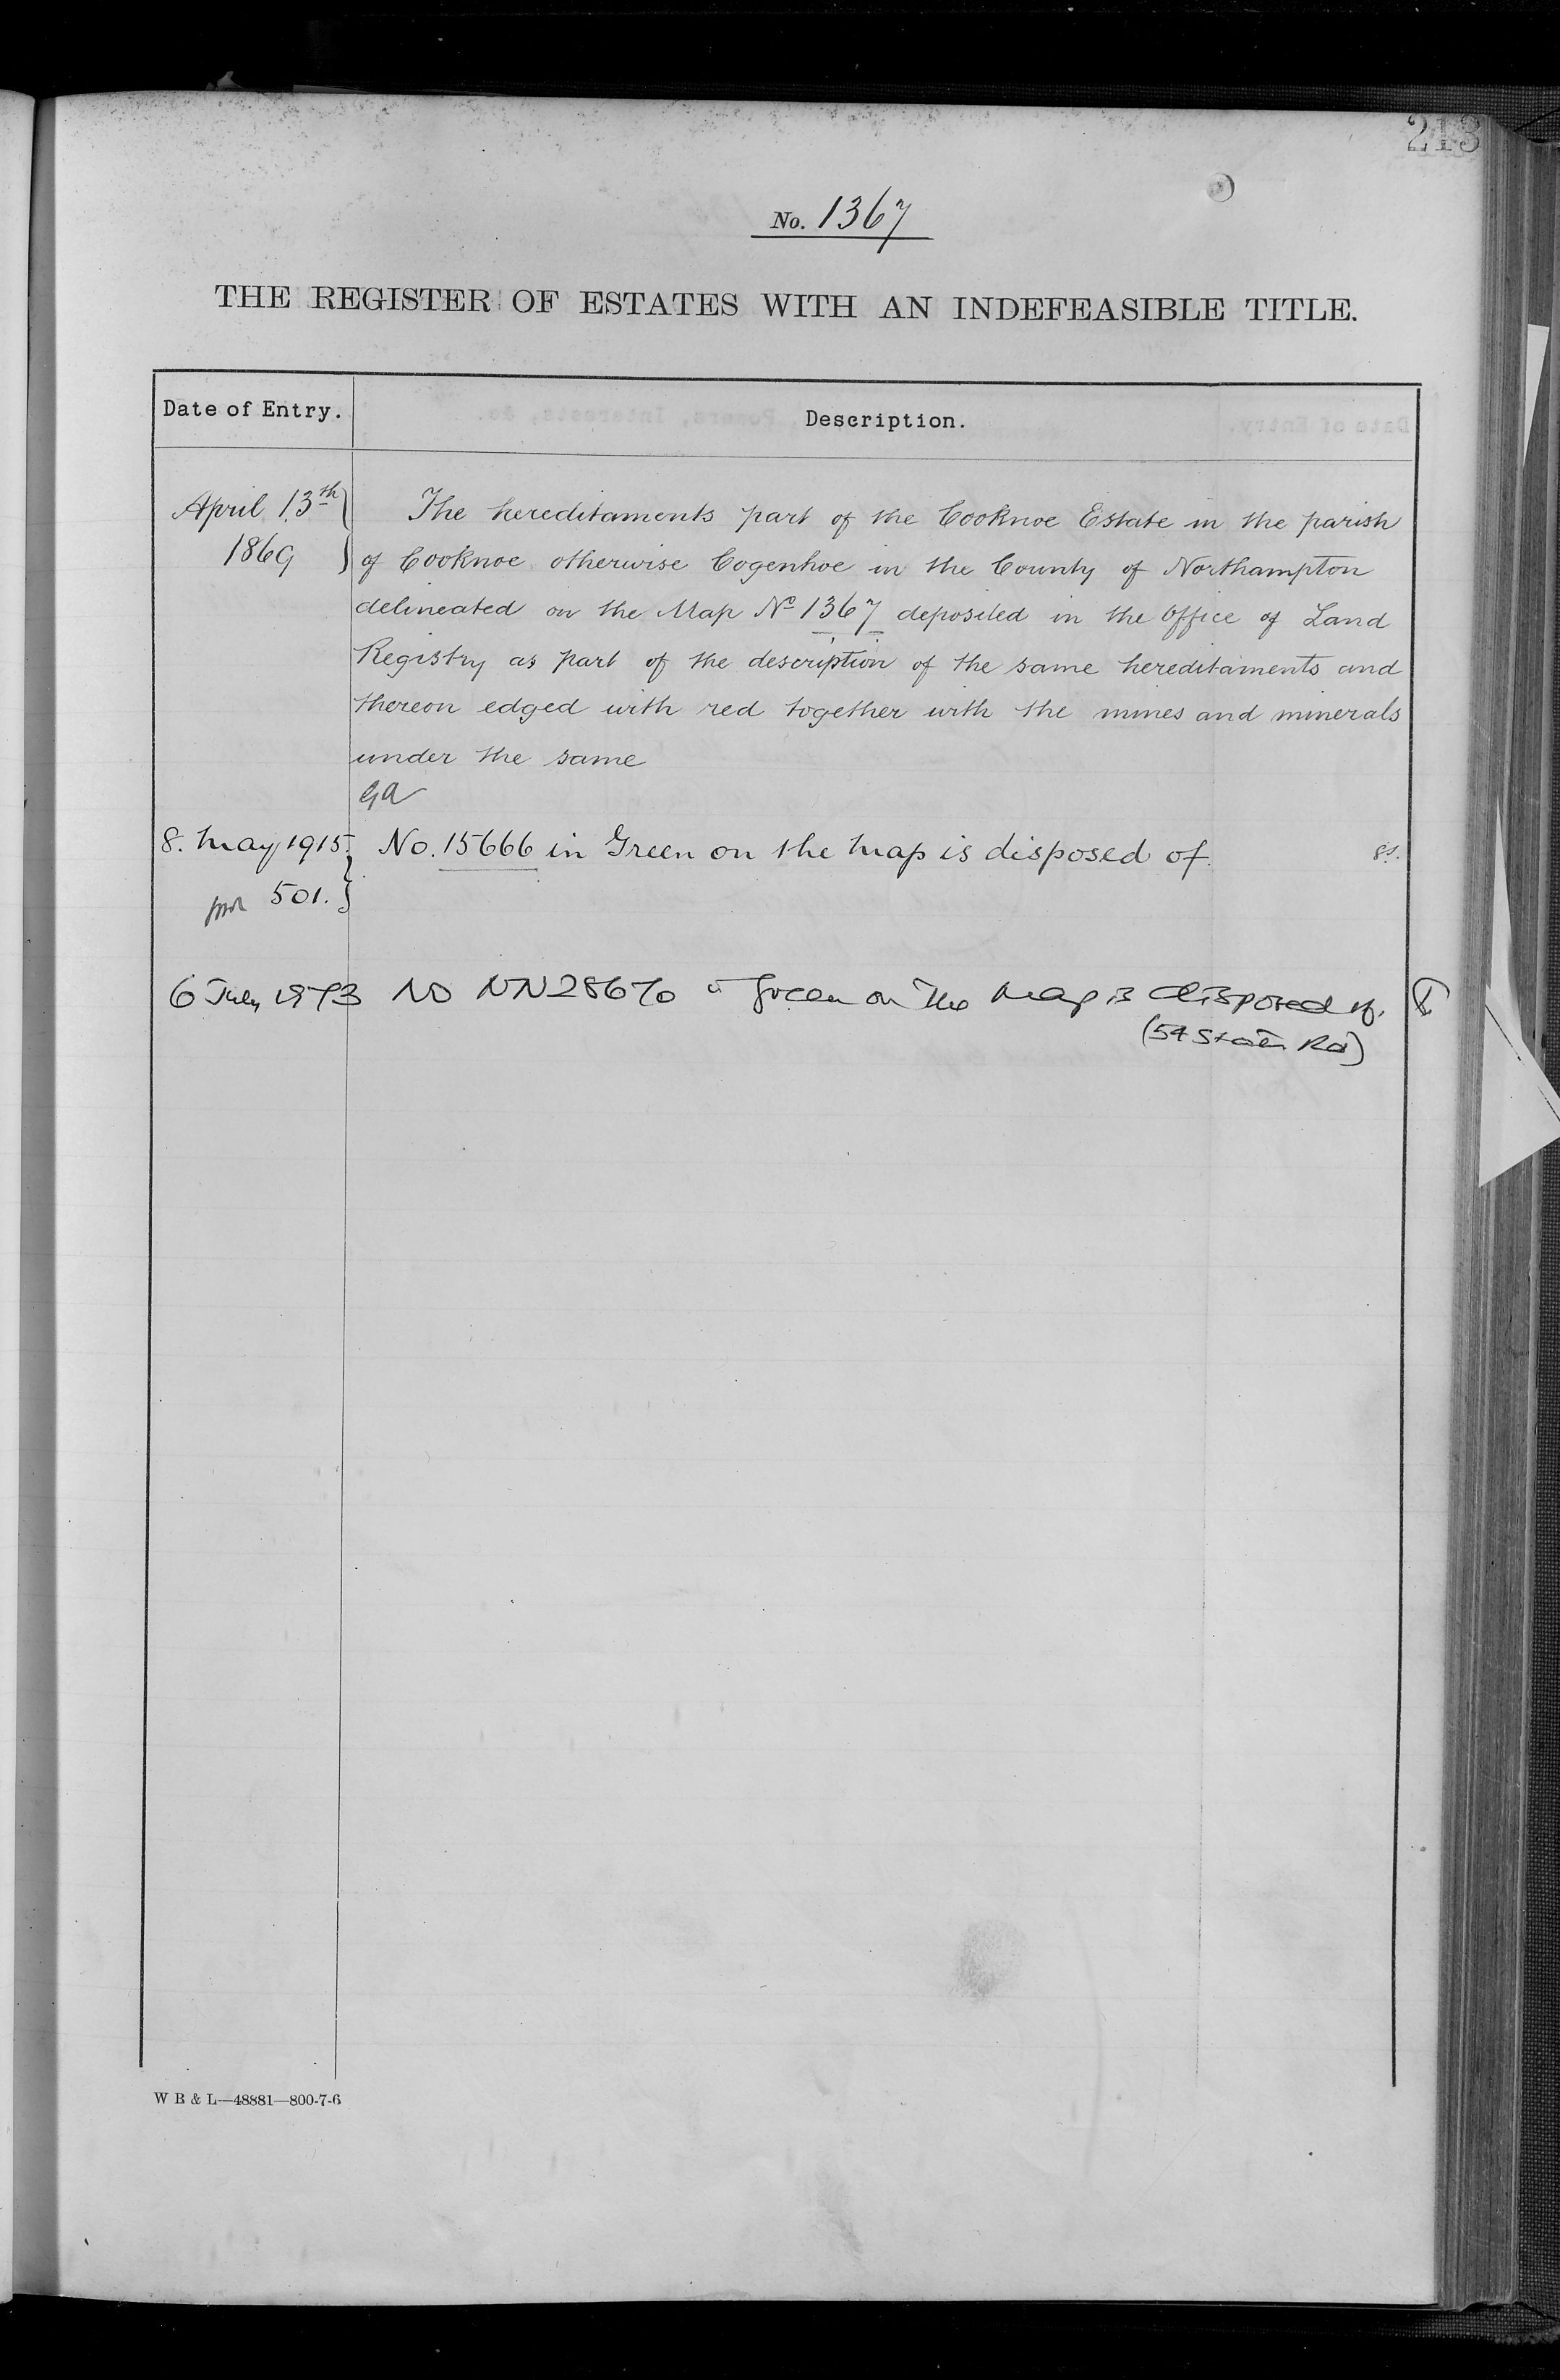 213
No. 1367
THE REGISTER OF ESTATES WITH AN INDEFEASIBLE TITLE.
Date of Entry.
Description.
April 13th
1869
The hereditaments part of the Cooknoe Estate in the parish
of Cooknoe otherwise Cogenhoe in the County of Northampton
delineated on the Map No 1367 deposited in the Office of Land
Registry as part of the description of the same hereditaments and
thereon edged with red together with the mines and minerals
under the same
GA
8. May 1915. No. 15666 in Green on the Map is disposed of.
501.
6 July 1973 No NN28670 in Green on the Map is disposed of.
(54 Station Rd)
W B & L—48881—800-7-6